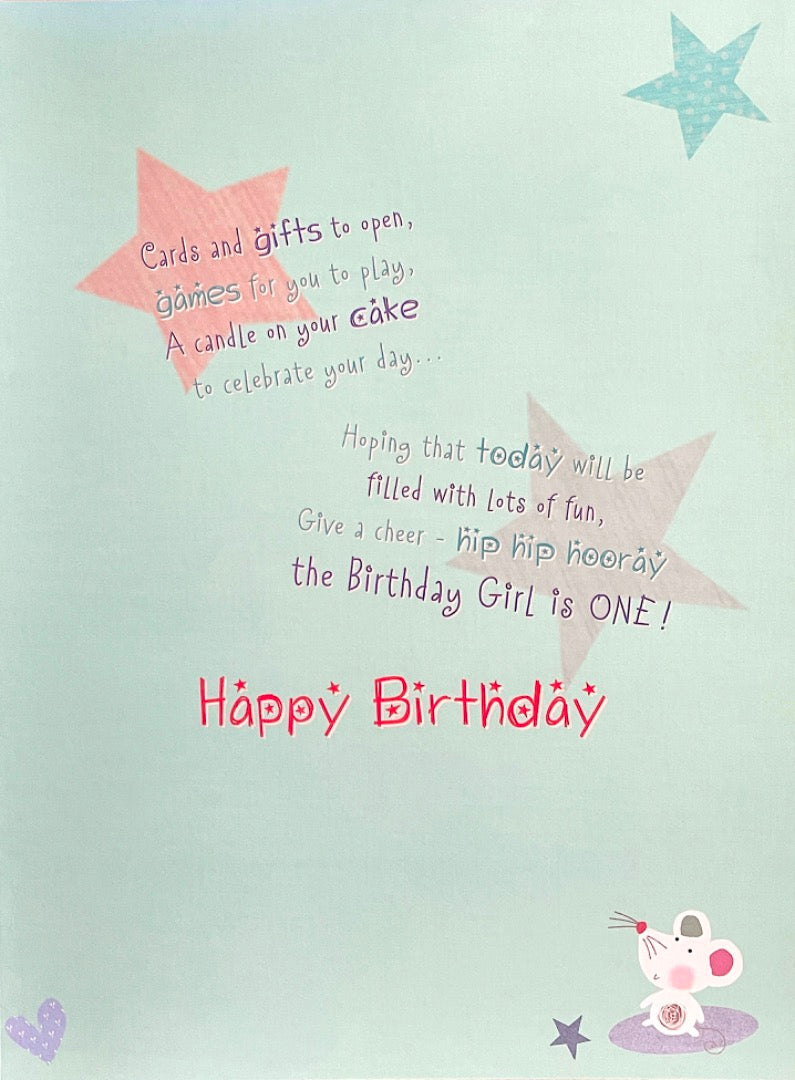 Cards and gifts to open,
games for you to play,
A candle on your cake
to celebrate your day...
Hoping that today will be
filled with lots of fun,
Give a cheer - hip hip hooray
the Birthday Girl is ONE!
Happy Birthday